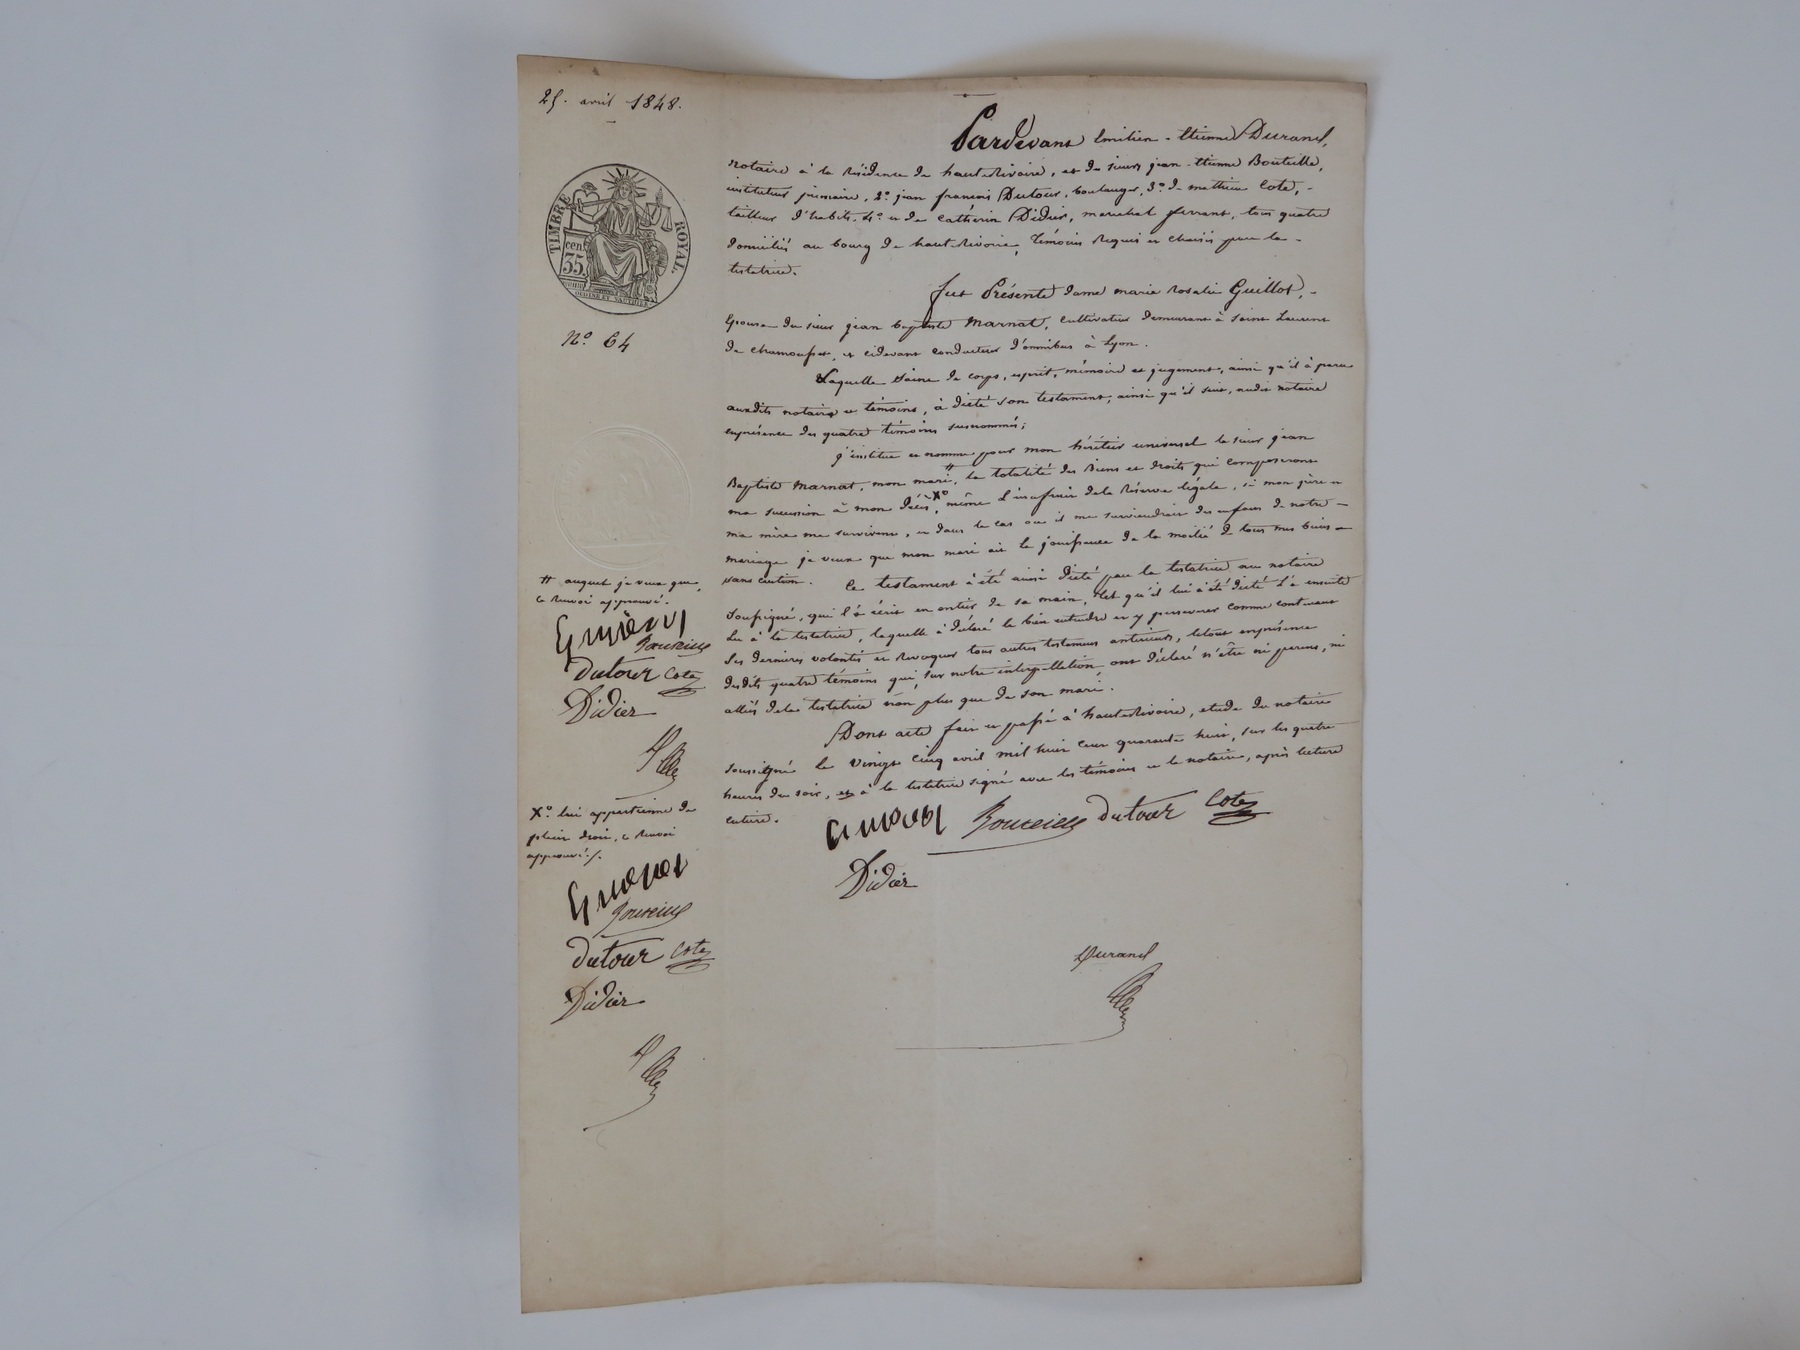 25. avril 1848.
TIMBRE ROYAL.
cen.
35.
N.o 64
Pardevant Emilien-Etienne Durand,
notaire à la Résidence de haute Rivoire, et de sieurs jean-Etienne Bouteille,
instituteur primaire, 2.o jean françois Dutour, boulanger, 3.o de mathieu Cote,-
tailleur d'habits, 4.o et de cathérin Didier, maréchal ferrant, tous quatre
domiciliés au bourg de haute Rivoire, témoins Requis et choisis par la-
testatrice.
fut Présente dame marie Rosalie Guillot,-
Epouse du sieur jean baptiste Marnat, cultivateur demeurant à Saint Laurent
de chamousset, et cidevant conducteur d'omnibus à Lyon.
Laquelle Saine de corps, esprit, mémoire et jugement, ainsi qu'il à paru
auxdits notaire et témoins, à dicté son testament, ainsi qu'il suit, audit notaire
enprésence des quatre témoins susnommés;
j'institue et nomme pour mon héritier universel le sieur jean
Baptiste Marnat, mon mari, # la totalité des Biens et droits qui composeront
ma succession à mon décès, X.o même l'usufruit dela Réserve légale, si mon père et
ma mère me survivent, et dans le cas ou il me surviendrait des enfans de notre-
mariage je veux que mon mari ait la jouissance de la moitié de tous mes biens-
sans caution. Ce testament à été ainsi dicté par la testatrice au notaire
soussigné, qui l'à écrit en entier de sa main, tel qu'il lui à été dicté l'à ensuite
Lu à la testatrice, laquelle à déclaré le bien entendre et y perseverer comme contenant
Ses dernieres volontés et Revoquer tous autres testamens anterieurs, letout enprésence
desdits quatre témoins qui, sur notre interpellation ont déclaré n'être ni parens, ni
alliés dela testatrice non plus que de son mari.
Dont acte fait et passé à haute Rivoire, etude du notaire
soussigné le vingt cinq avril mil huit cent quarante huit, sur les quatre
heures du soir, et à la testatrice signé avec les témoins et le notaire, après lecture
entiere.
Bouteille dutour Cote
Didier
Durand
# auquel je veux que
ce Renvoi approuvé.
Bouteille
dutour Cote
Didier
X.o lui appartienne de
plein droit, ce Renvoi
approuvé./.
Bouteille
dutour Cote
Didier